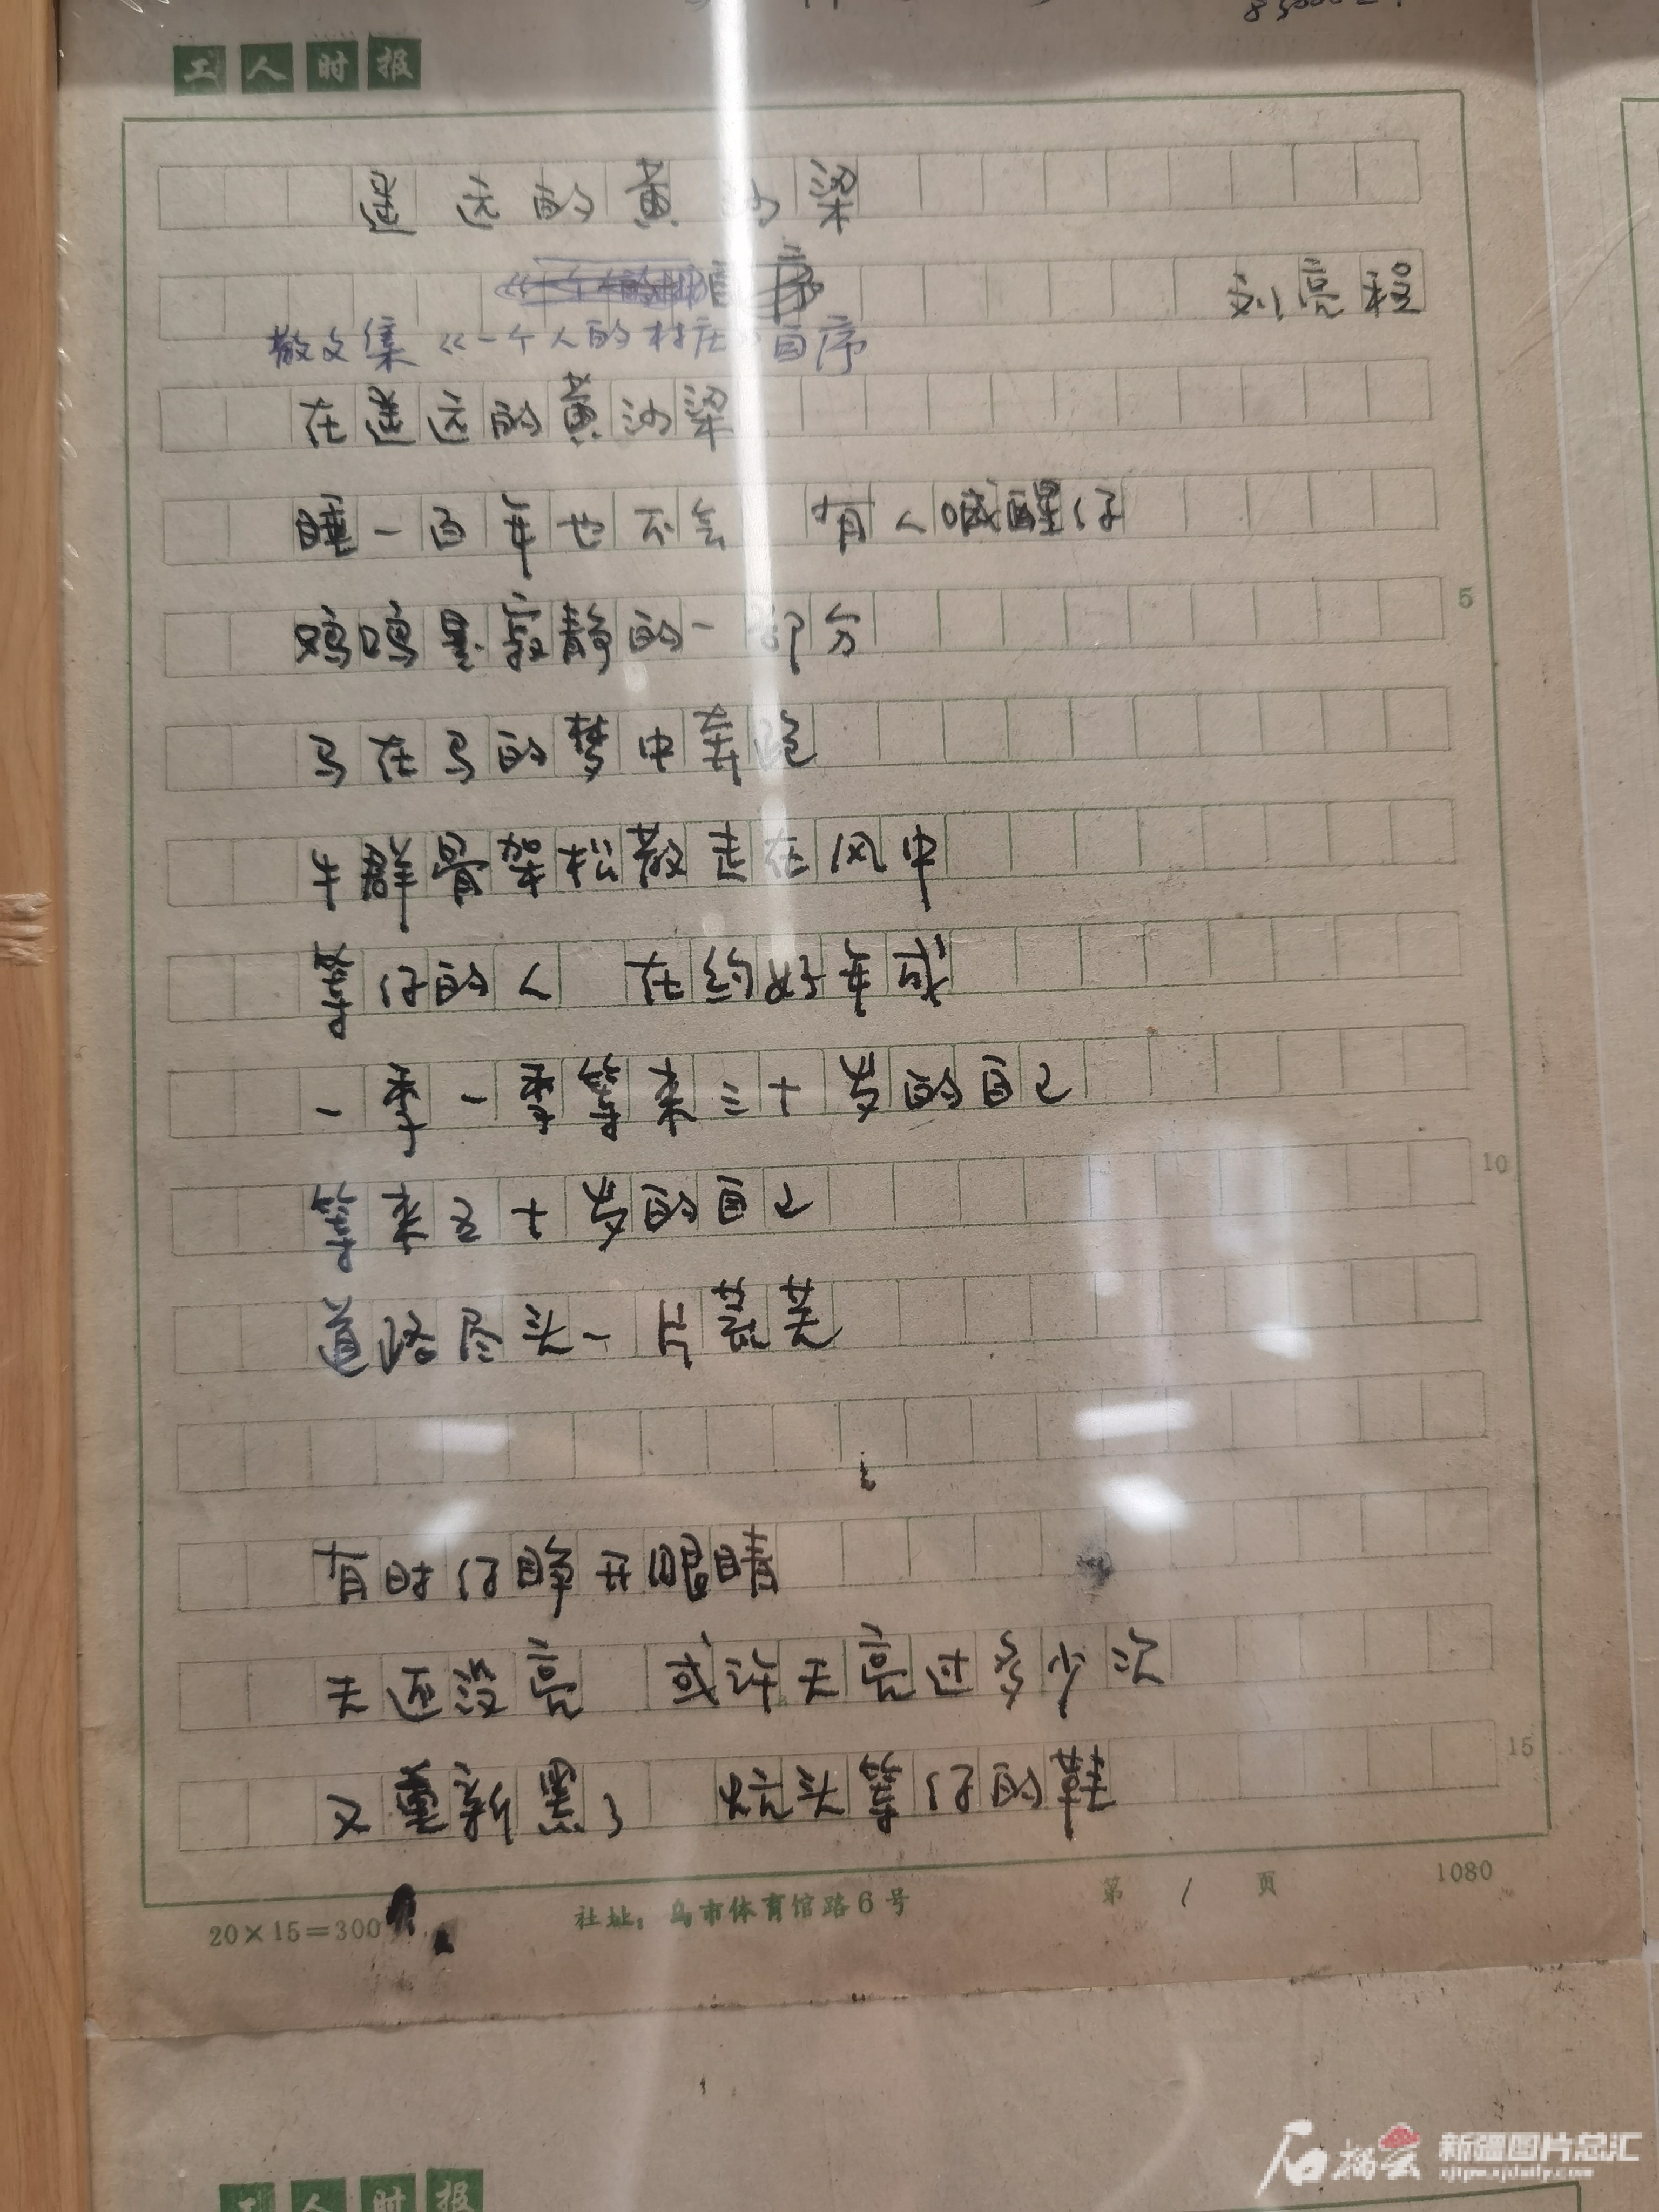 工人时报
遥远的黄沙梁
自序
刘亮程
散文集《一个人的村庄》自序
在遥远的黄沙梁
睡一百年也不会 有人喊醒你
鸡鸣是寂静的一部分
马在马的梦中奔跑
牛群骨架松散走在风中
等你的人 在约好年成
一季一季等来三十岁的自己
等来五十岁的自己
道路尽头一片荒芜
有时你睁开眼睛
天还没亮 或许天亮过多少次
又重新黑了 炕头等你的鞋
5
10
15
20×15=300
社址：乌市体育馆路6号
第1页
1080
工人时报
石榴云
新疆图片总汇
xjtpw.xjdaily.com